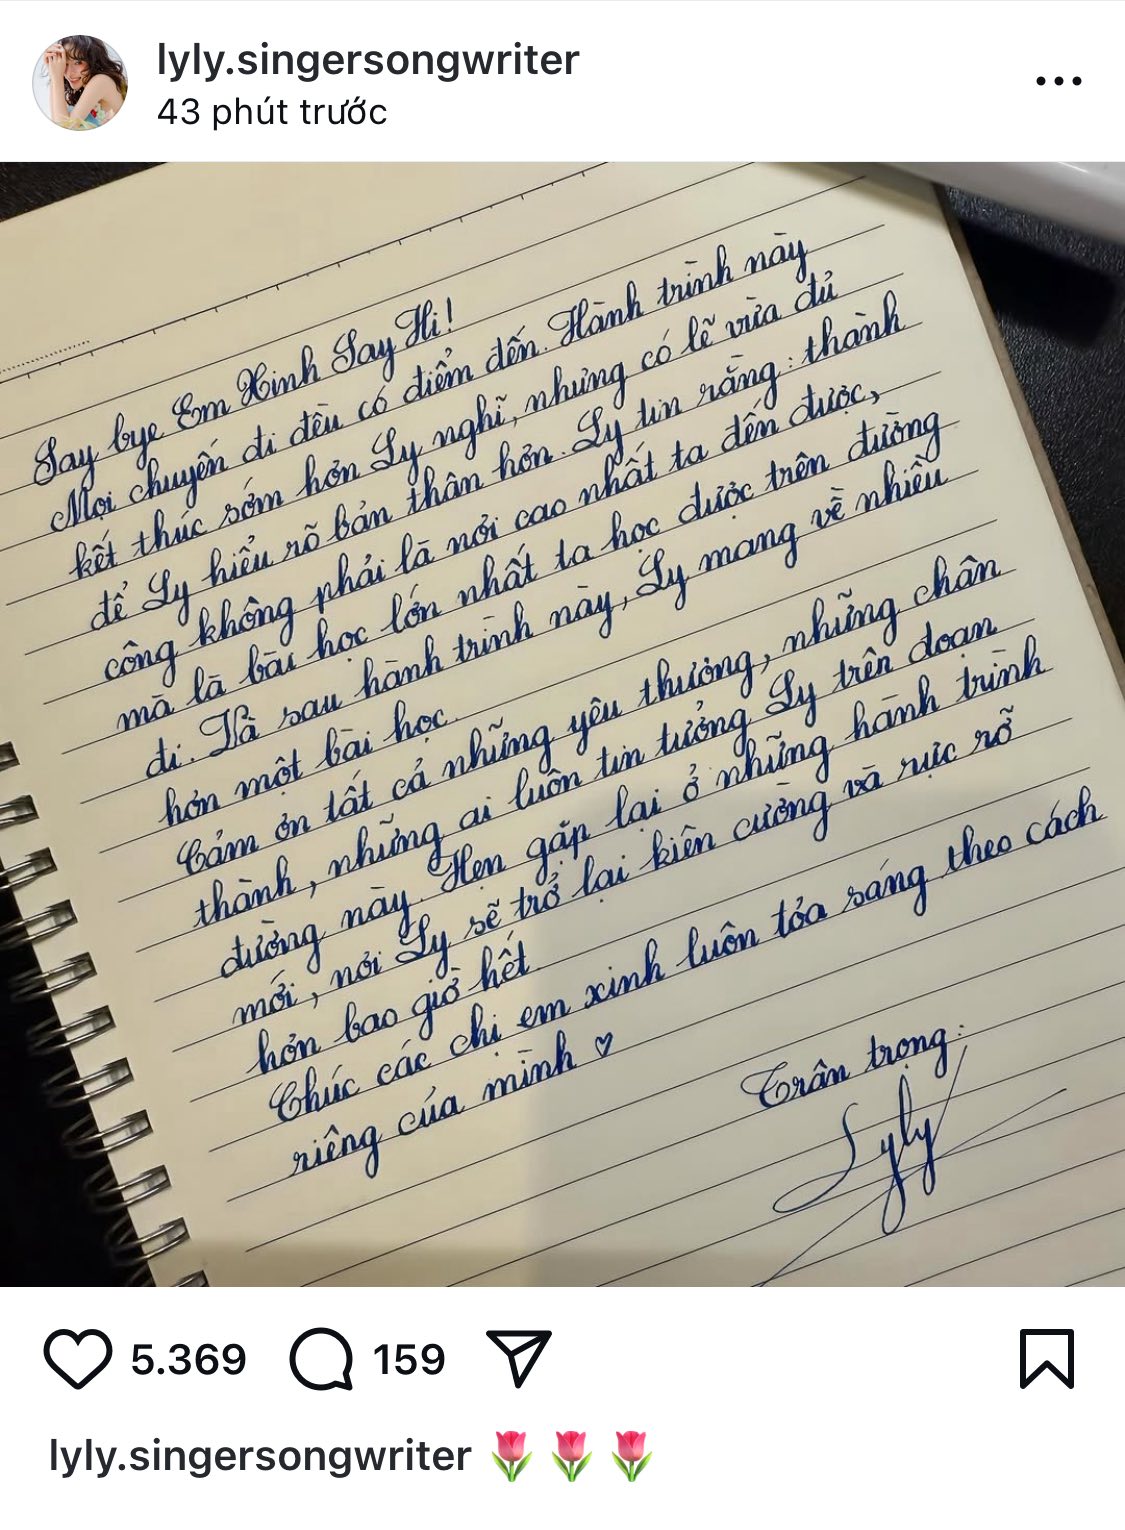 lyly.singersongwriter
43 phút trước
Say bye Em Xinh Say Hi!
Mọi chuyến đi đều có điểm đến. Hành trình này
kết thúc sớm hơn Ly nghĩ, nhưng có lẽ vừa đủ
để Ly hiểu rõ bản thân hơn. Ly tin rằng: thành
công không phải là nơi cao nhất ta đến được,
mà là bài học lớn nhất ta học được trên đường
đi. Và sau hành trình này, Ly mang về nhiều
hơn một bài học.
Cảm ơn tất cả những yêu thương, những chân
thành, những ai luôn tin tưởng Ly trên đoạn
đường này. Hẹn gặp lại ở những hành trình
mới, nơi Ly sẽ trở lại kiên cường và rực rỡ
hơn bao giờ hết.
Chúc các chị em xinh luôn tỏa sáng theo cách
riêng của mình ♡
Trân trọng:
Lyly
5.369
159
lyly.singersongwriter 🌷🌷🌷